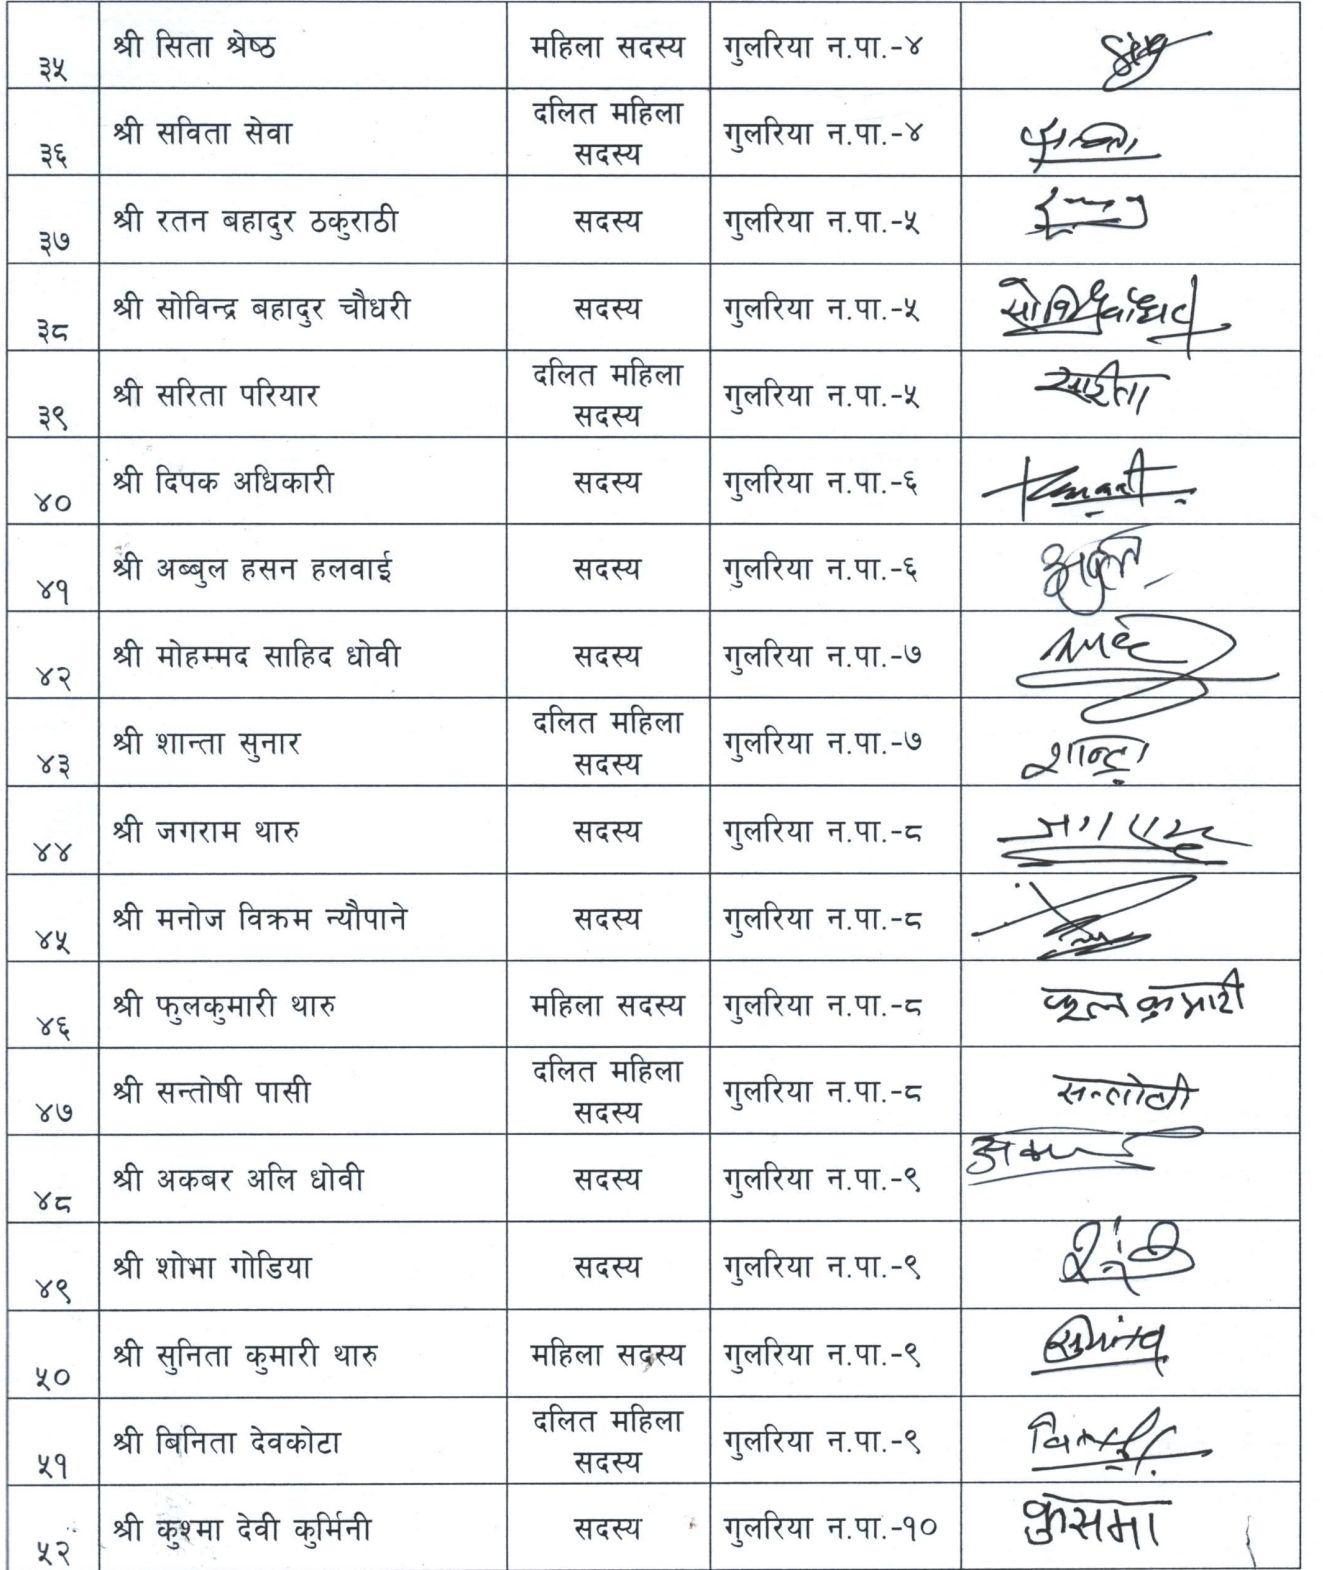 ३५ श्री सिता श्रेष्ठ महिला सदस्य गुलरिया न.पा.-४
३६ श्री सविता सेवा दलित महिला सदस्य गुलरिया न.पा.-४
३७ श्री रतन बहादुर ठकुराठी सदस्य गुलरिया न.पा.-५
३८ श्री सोविन्द्र बहादुर चौधरी सदस्य गुलरिया न.पा.-५
३९ श्री सरिता परियार दलित महिला सदस्य गुलरिया न.पा.-५ सरिता
४० श्री दिपक अधिकारी सदस्य गुलरिया न.पा.-६
४१ श्री अब्बुल हसन हलवाई सदस्य गुलरिया न.पा.-६
४२ श्री मोहम्मद साहिद धोवी सदस्य गुलरिया न.पा.-७
४३ श्री शान्ता सुनार दलित महिला सदस्य गुलरिया न.पा.-७
४४ श्री जगराम थारु सदस्य गुलरिया न.पा.-८
४५ श्री मनोज विक्रम न्यौपाने सदस्य गुलरिया न.पा.-८
४६ श्री फुलकुमारी थारु महिला सदस्य गुलरिया न.पा.-८ फूल कुमारी
४७ श्री सन्तोषी पासी दलित महिला सदस्य गुलरिया न.पा.-८ सन्तोषी
४८ श्री अकबर अलि धोवी सदस्य गुलरिया न.पा.-९
४९ श्री शोभा गोडिया सदस्य गुलरिया न.पा.-९
५० श्री सुनिता कुमारी थारु महिला सदस्य गुलरिया न.पा.-९
५१ श्री बिनिता देवकोटा दलित महिला सदस्य गुलरिया न.पा.-९
५२ श्री कुश्मा देवी कुर्मिनी सदस्य गुलरिया न.पा.-१० कुसमा